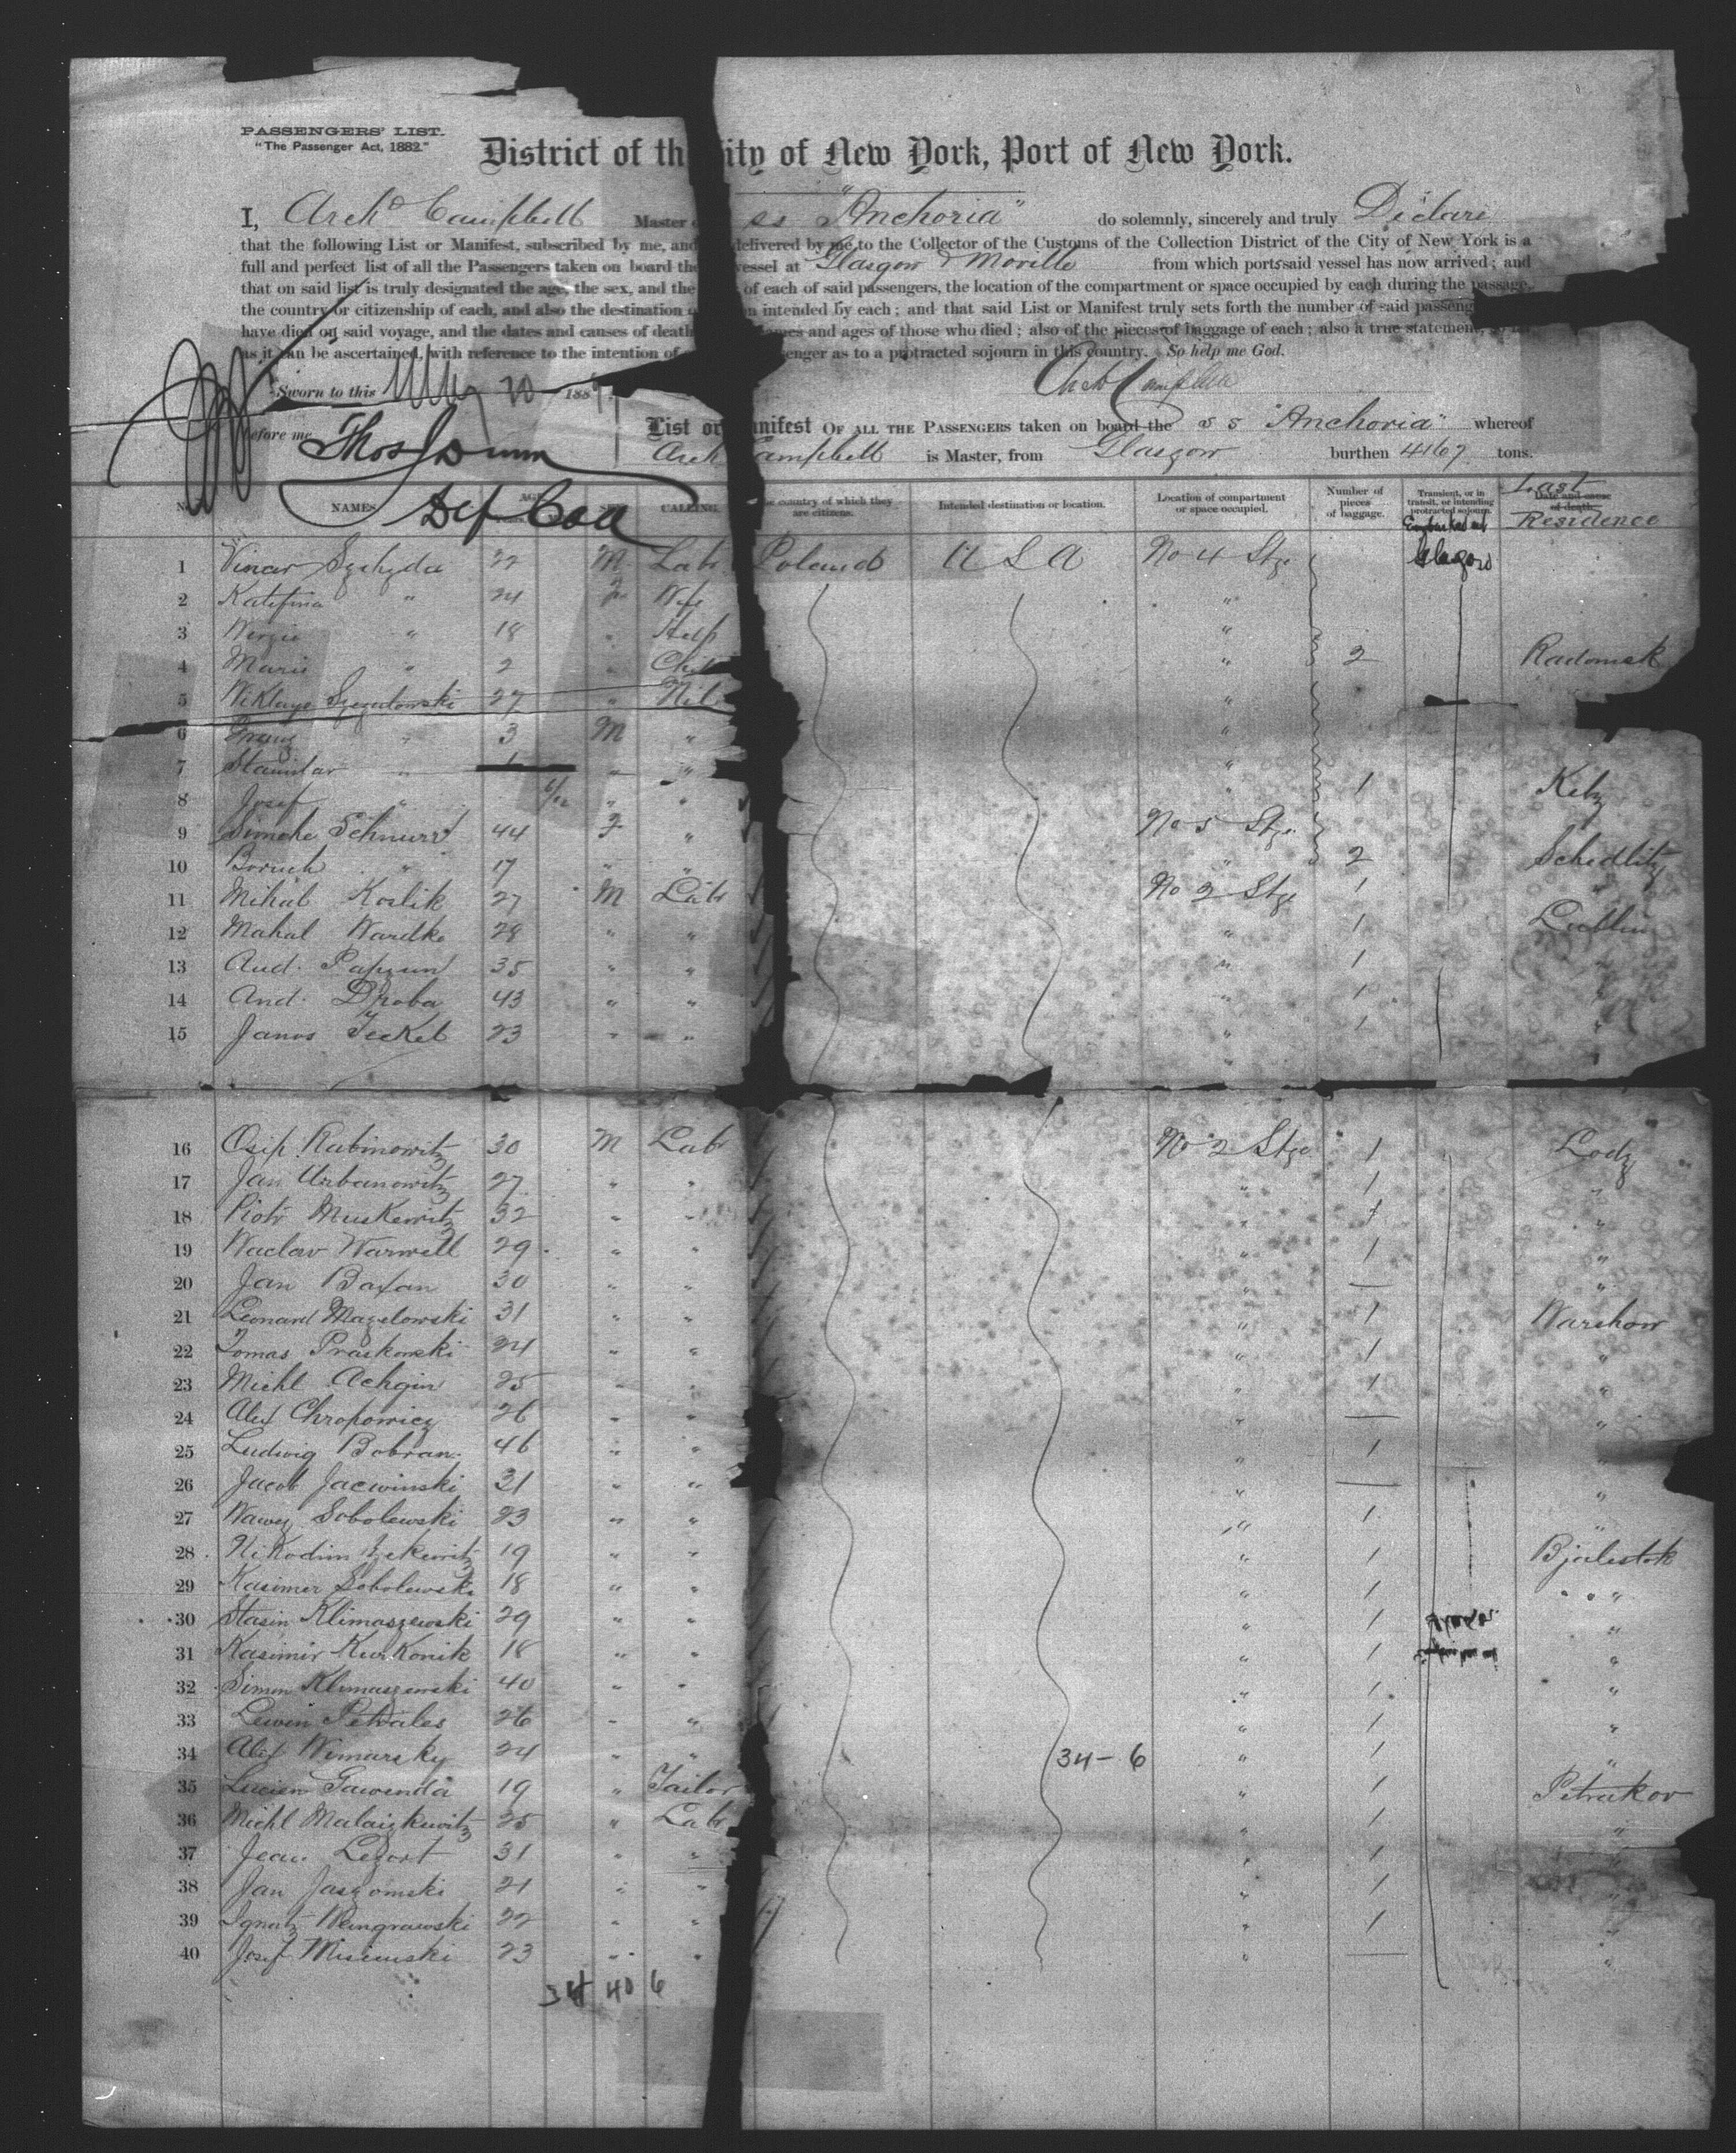 PASSENGERS' LIST.
"The Passenger Act, 1882."
District of th ity of New York, Port of New York.
I, Arch Campbell Master o ss "Anchoria" do solemnly, sincerely and truly Declare
that the following List or Manifest, subscribed by me, and delivered by me to the Collector of the Customs of the Collection District of the City of New York is a
full and perfect list of all the Passengers taken on board the vessel at Glasgow & Moville from which ports said vessel has now arrived; and
that on said list is truly designated the age, the sex, and the of each of said passengers, the location of the compartment or space occupied by each during the passage,
the country or citizenship of each, and also the destination o n intended by each; and that said List or Manifest truly sets forth the number of said passeng
have died on said voyage, and the dates and causes of death ames and ages of those who died; also of the pieces of baggage of each; also a true statement,
as it can be ascertained, with reference to the intention of senger as to a protracted sojourn in this country. So help me God.
Arch Campbell
Sworn to this 20 188
before me Thos J Dunn
Dep Coll
List or anifest OF ALL THE PASSENGERS taken on board the S S "Anchoria" whereof
Arch ampbell is Master, from Glasgow burthen 4167 tons.
NAMES. AGE CALLING. e country of which they are citizens. Intended destination or location. Location of compartment or space occupied. Number of pieces of baggage. Transient, or in transit, or intending protracted sojourn. Embarked at Date and cause of death. Last Residence
1 Lab Poland U S A No 4 Stge Glasgow
2 Katifina " 24 F Wife "
3 " 18 " Help "
4 Marie " 2 " " 2 Radomsk
5 27 " "
6 Franz " 3 M " "
7 Stanislav " 1 " " "
8 Josef " 6/12 " " " 1 Kelz
9 Simche Schnurr 44 F " No 5 Stge
10 Boruch " 17 " " " 2 Schedlitz
11 Mihal Koslik 27 M Lab No 2 Stge 1 "
12 Mahal Wardke 28 " " " 1 Lublin
13 And. 35 " " " 1 "
14 And. Droba 43 " " " 1 "
15 Janos Jeckel 23 " " " 1 "
16 Osip Rabinowitz 30 M Lab No 2 Stge 1 Lodz
17 Jan Urbanowitz 27 " " " 1 "
18 Piotr Muskewitz 32 " " " 1 "
19 Waclav Warwell 29 " " " 1 "
20 Jan 30 " " " — "
21 Leonard Mazelowski 31 " " " 1 Warshow
22 Tomas Praskowski 24 " " " 1 "
23 Michl Achgin 25 " " " 1 "
24 Alex Chropowicz 26 " " " — "
25 Ludwig Bobran 46 " " " 1 "
26 Jacob Jacwinski 31 " " " — "
27 Sobolewski 23 " " " 1 "
28 Nikodim 19 " " " 1 Bjalestok
29 Kasimer Sobolewski 18 " " " 1 "
30 Stasin Klimaszewski 29 " " " 1 "
31 Kasimir Kurkonik 18 " " " 1 "
32 Simon Klimaszewski 40 " " " 1 "
33 Lewin Petrales 26 " " " 1 "
34 Alex Wimarsky 24 " " 34-6 " 1 "
35 Lucien Gawenda 19 " Tailor " 1 Petrukov
36 Michl Malaizkewitz 25 " Lab " 1 "
37 Jean 31 " " " 1 "
38 Jan Jaszomski 21 " " " 1 "
39 Ignatz 22 " " " 1 "
40 Josef 23 " " " — "
34 40 6